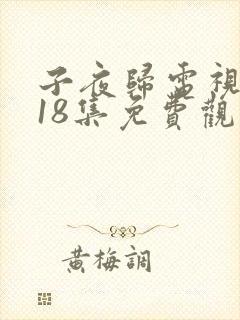 子夜歸電視
18集免費觀
黃梅調